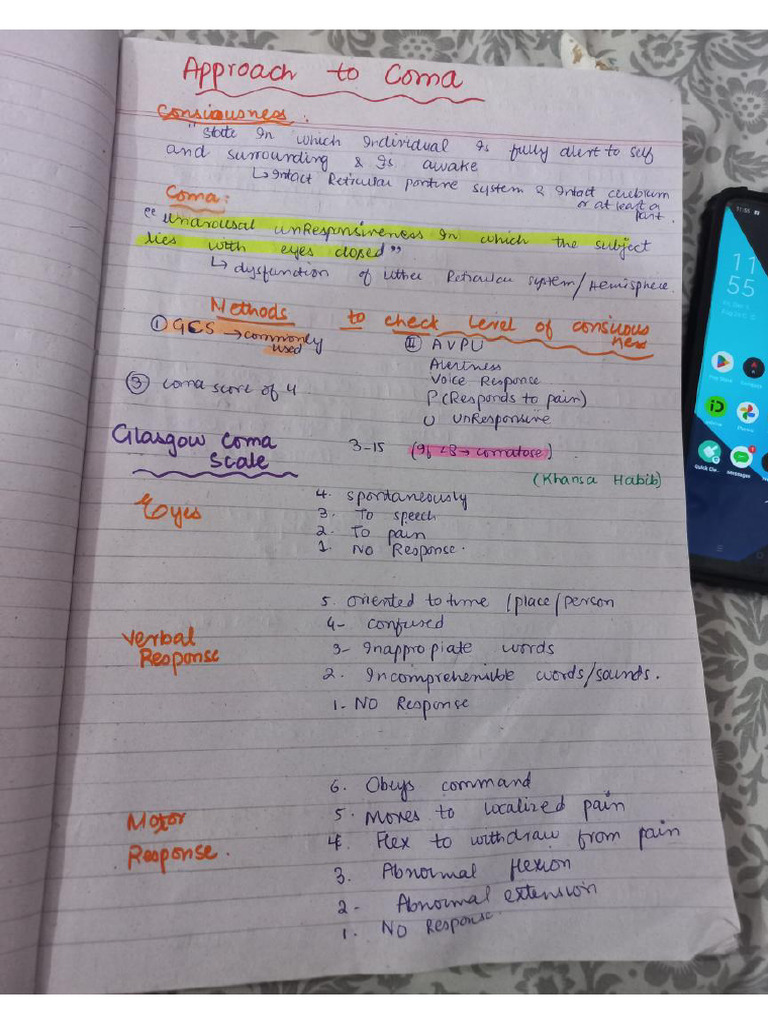 Approach to Coma
Consiousness:
"State in which individual is fully alert to self
and surrounding & is awake
↳ Intact Reticular pontine system & Intact cerebrium
or at least a
part.
Coma:
"Unarousal unResponsiveness in which the subject
lies with eyes closed"
↳ dysfunction of either Reticular system/Hemisphere.
Methods to check level of consiuous
ness
① GCS → commonly
used
② AVPU
Alertness
Voice Response
P (Responds to pain)
U unResponsive
③ coma score of 4
Glasgow Coma
Scale
3-15 (If <8 → comatose)
(Khansa Habib)
Eyes
4. spontaneously
3. To speech
2. To pain
1. NO Response.
Verbal
Response
5. oriented to time/place/person
4- confused
3- Inappropiate words
2. Incomprehensible words/sounds.
1- NO Response
Motor
Response.
6. Obeys command
5. Moxes to localized pain
4. Flex to withdraw from pain
3. Abnormal flexion
2- Abnormal extension
1. NO Response
11:55
11
55
Play Store
Phone
Messages